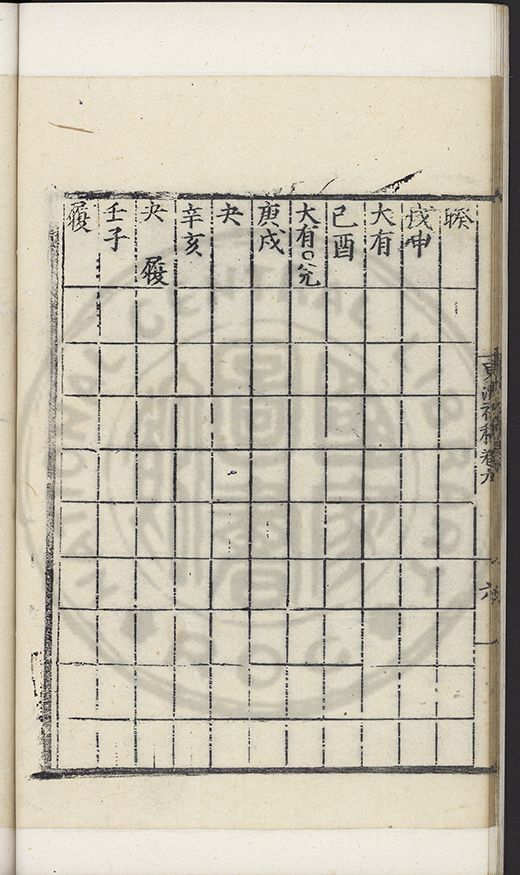 睽
戊申
大有
己酉
大有○兊
庚戌
夬
辛亥
夬 履
壬子
履
卷九
六